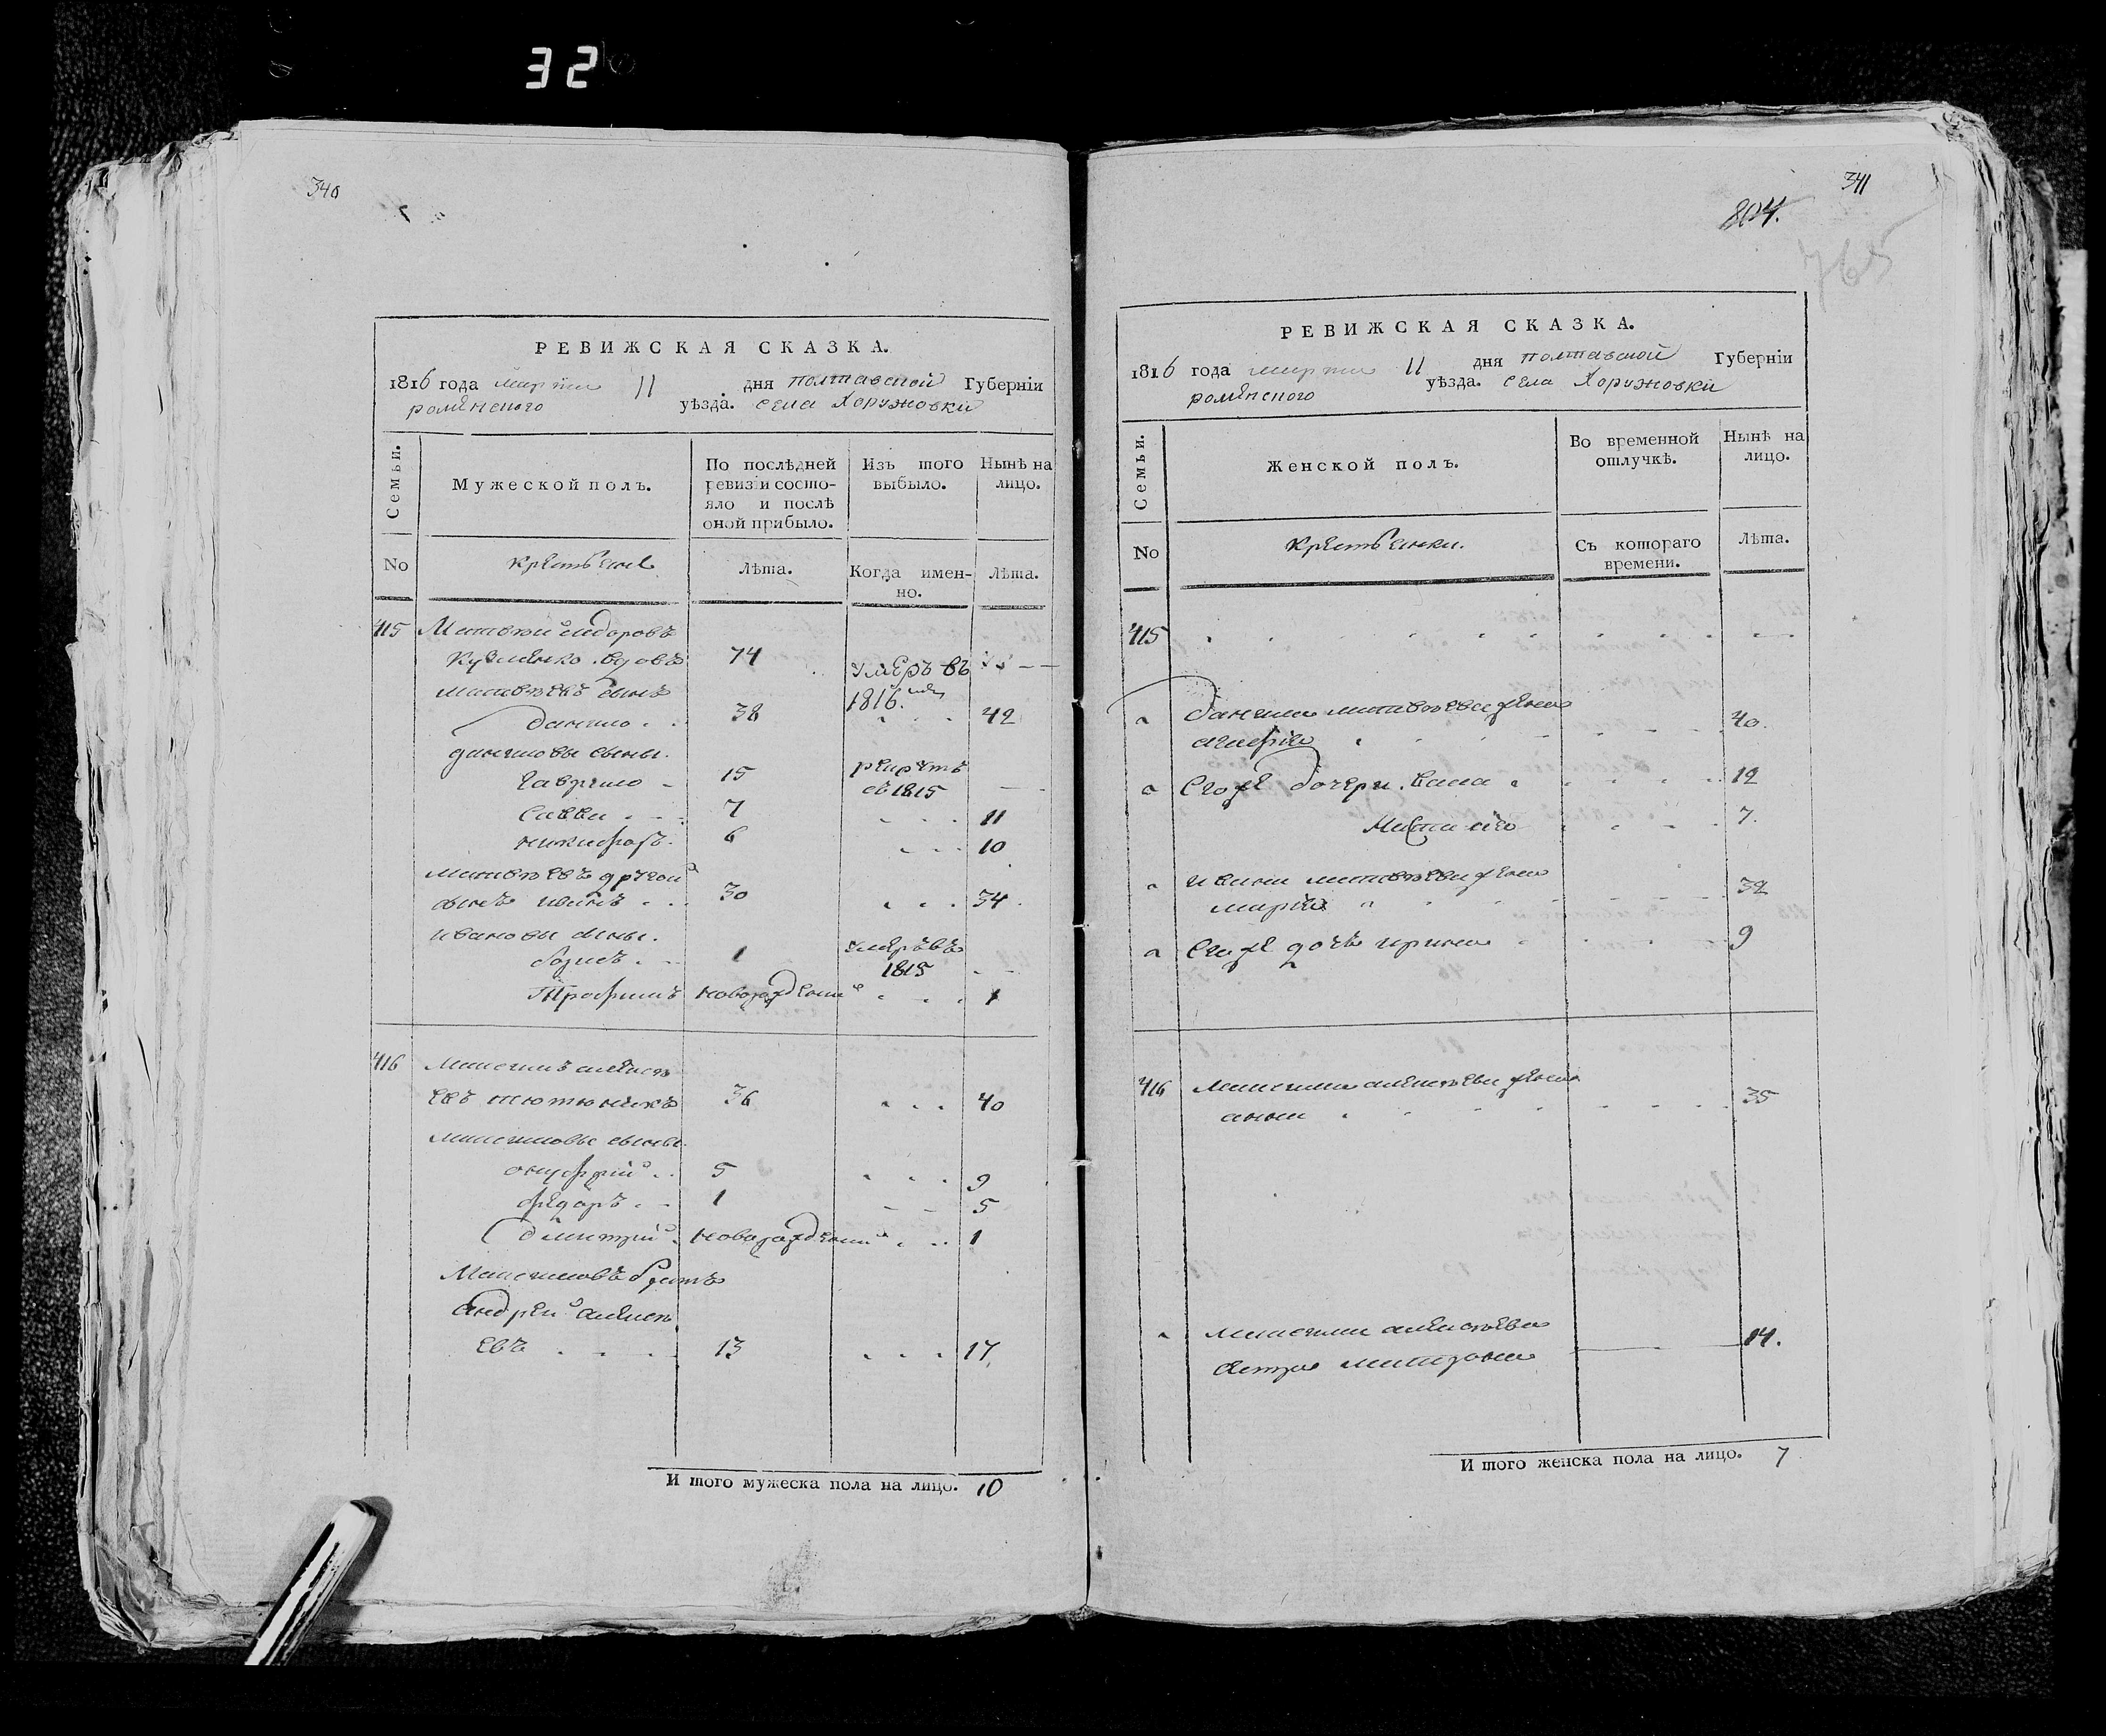 32
340
РЕВИЖСКАЯ СКАЗКА.
1816 года марта 11 дня Полтавской Губерніи
роменского уѣзда. села Хоружовки
Семьи.
Мужеской полъ.
По послѣдней ревизіи состояло и послѣ оной прибыло.
Изъ того выбыло.
Нынѣ на лицо.
No
Крестьяне
Лѣта.
Когда именно.
Лѣта.
415 Матвѣй сидоровъ
Кузменко вдовъ 74 умеръ въ 1816.
матвѣевъ сынъ
данило 38 42
даниловы сыны.
гаврило 15 рекрутъ въ 1815
савва 7 11
никифоръ 6 10
матвѣевъ другой
сынъ иванъ 30 34
ивановы сыны.
борисъ 1 умеръ въ 1815
Трофимъ новорожденый 1
416 максимъ алексѣ
евъ тютюникъ 36 40
максимовы сыны
онуфрий 5 9
федоръ 1 5
дмитрий новорожденый 1
Максимовъ братъ
андрей алексѣ
евъ 13 17
И того мужеска пола на лицо. 10
341
804.
765
РЕВИЖСКАЯ СКАЗКА.
1816 года марта 11 дня полтавской Губерніи
роменского уѣзда. села Хоружовки
Семьи.
Женской полъ.
Во временной отлучкѣ.
Нынѣ на лицо.
No
Крестьянки.
Съ котораго времени.
Лѣта.
415
данила матвѣева жена
40.
его же дочери. 12
7.
ивана матвѣева жена
мария 32
его же дочь ирина 9
416 максима алексѣева жена
анна 35
максима алексѣева
сестра 14.
И того женска пола на лицо. 7